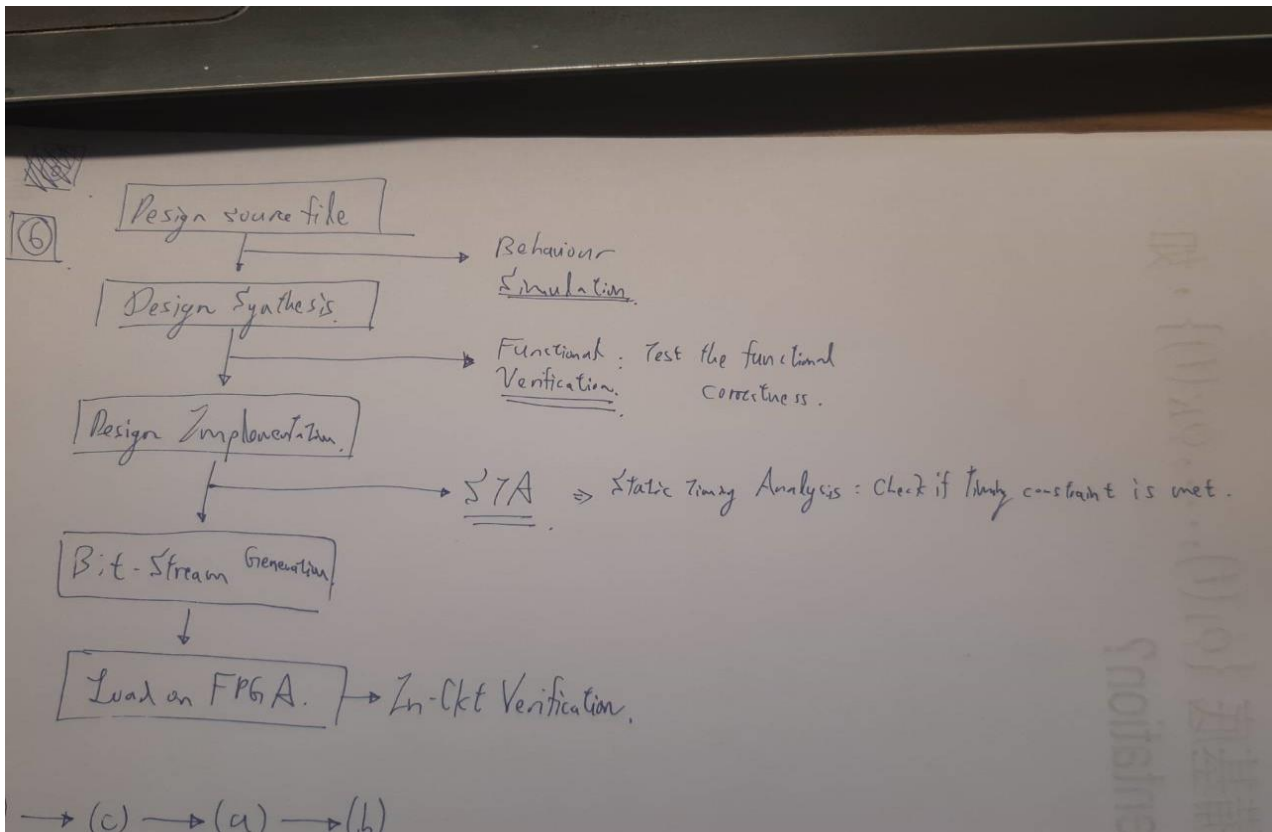 ⑥
Design source file
Behaviour
Simulation.
Design Synthesis.
Functional : Test the functional
Verification. correctness.
Design Implementation.
STA ⇒ Static Timing Analysis : Check if Timing constraint is met.
Bit-Stream Generation.
Load on FPGA. → In-Ckt Verification.
→ (c) → (a) → (b)